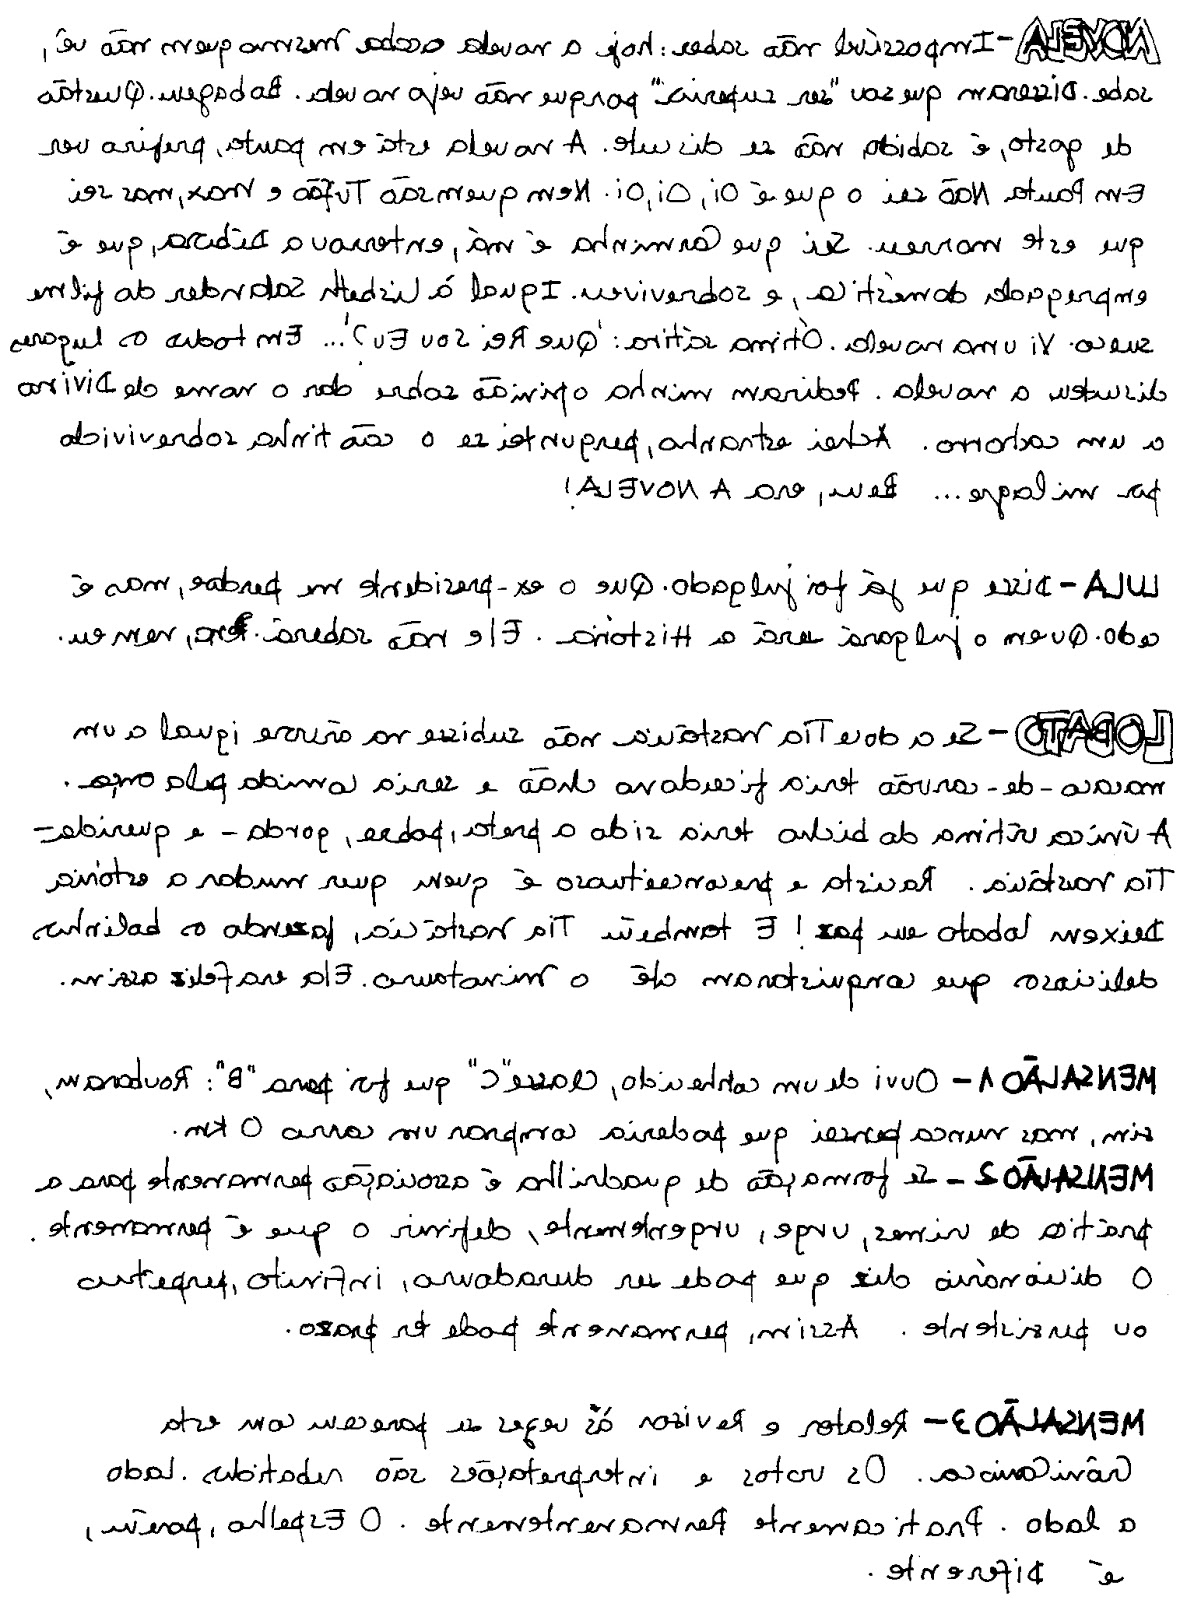 NOVELA - Impossível não saber: hoje a novela acaba. Mesmo quem não vê,
sabe. Disseram que sou "ser superior" porque não vejo novela. Bobagem. Questão
de gosto, é sabido, não se discute. A novela está em pauta, prefiro ver
Em Pauta. Não sei o que é Oi, Oi, Oi. Nem quem são Tufão e Max, mas sei
que este morreu. Sei que Carminha é má, enterrou a Débora, que é
empregada doméstica, e sobreviveu. Igual à Lisbeth Salander do filme
sueco. Vi uma novela. Ótima sátira: 'Que Rei Sou Eu?'... Em todos os lugares
discutem a novela. Pediram minha opinião sobre dar o nome de Divina
a um cachorro. Achei estranho, perguntei se o cão tinha sobrevivido
por milagre... Bem, era A NOVELA!
LULA - Disse que já foi julgado. Que o ex-presidente me perdoe, mas é
cedo. Quem o julgará será a História. Ele não saberá. nem eu.
LOBATO - Se a doce Tia Nastácia não subisse na árvore igual a um
macaco-de-carvão teria ficado no chão e seria comida pela onça.
A única vítima do bicho teria sido a preta, pobre, gorda - e querida -
Tia Nastácia. Racista e preconceituoso é quem quer mudar a estória
Deixem Lobato em paz! E também Tia Nastácia, fazendo os bolinhos
deliciosos que conquistaram até o Minotauro. Ela era feliz assim.
MENSALÃO 1 - Ouvi de um conhecido, Classe "C" que foi para "B": Roubaram,
sim, mas nunca pensei que poderia comprar um carro 0 km.
MENSALÃO 2 - Se formação de quadrilha é associação permanente para a
prática de crimes, urge, urgentemente, definir o que é permanente.
O dicionário diz que pode ser duradouro, infinito, perpétuo
ou persistente. Assim, permanente pode ter prazo.
MENSALÃO 3 - Relator e Revisor às vezes se parecem com esta
CrôniCanioca. Os votos e interpretações são rebatidos. Lado
a lado. Praticamente Permanentemente. O Espelho, porém,
é Diferente.